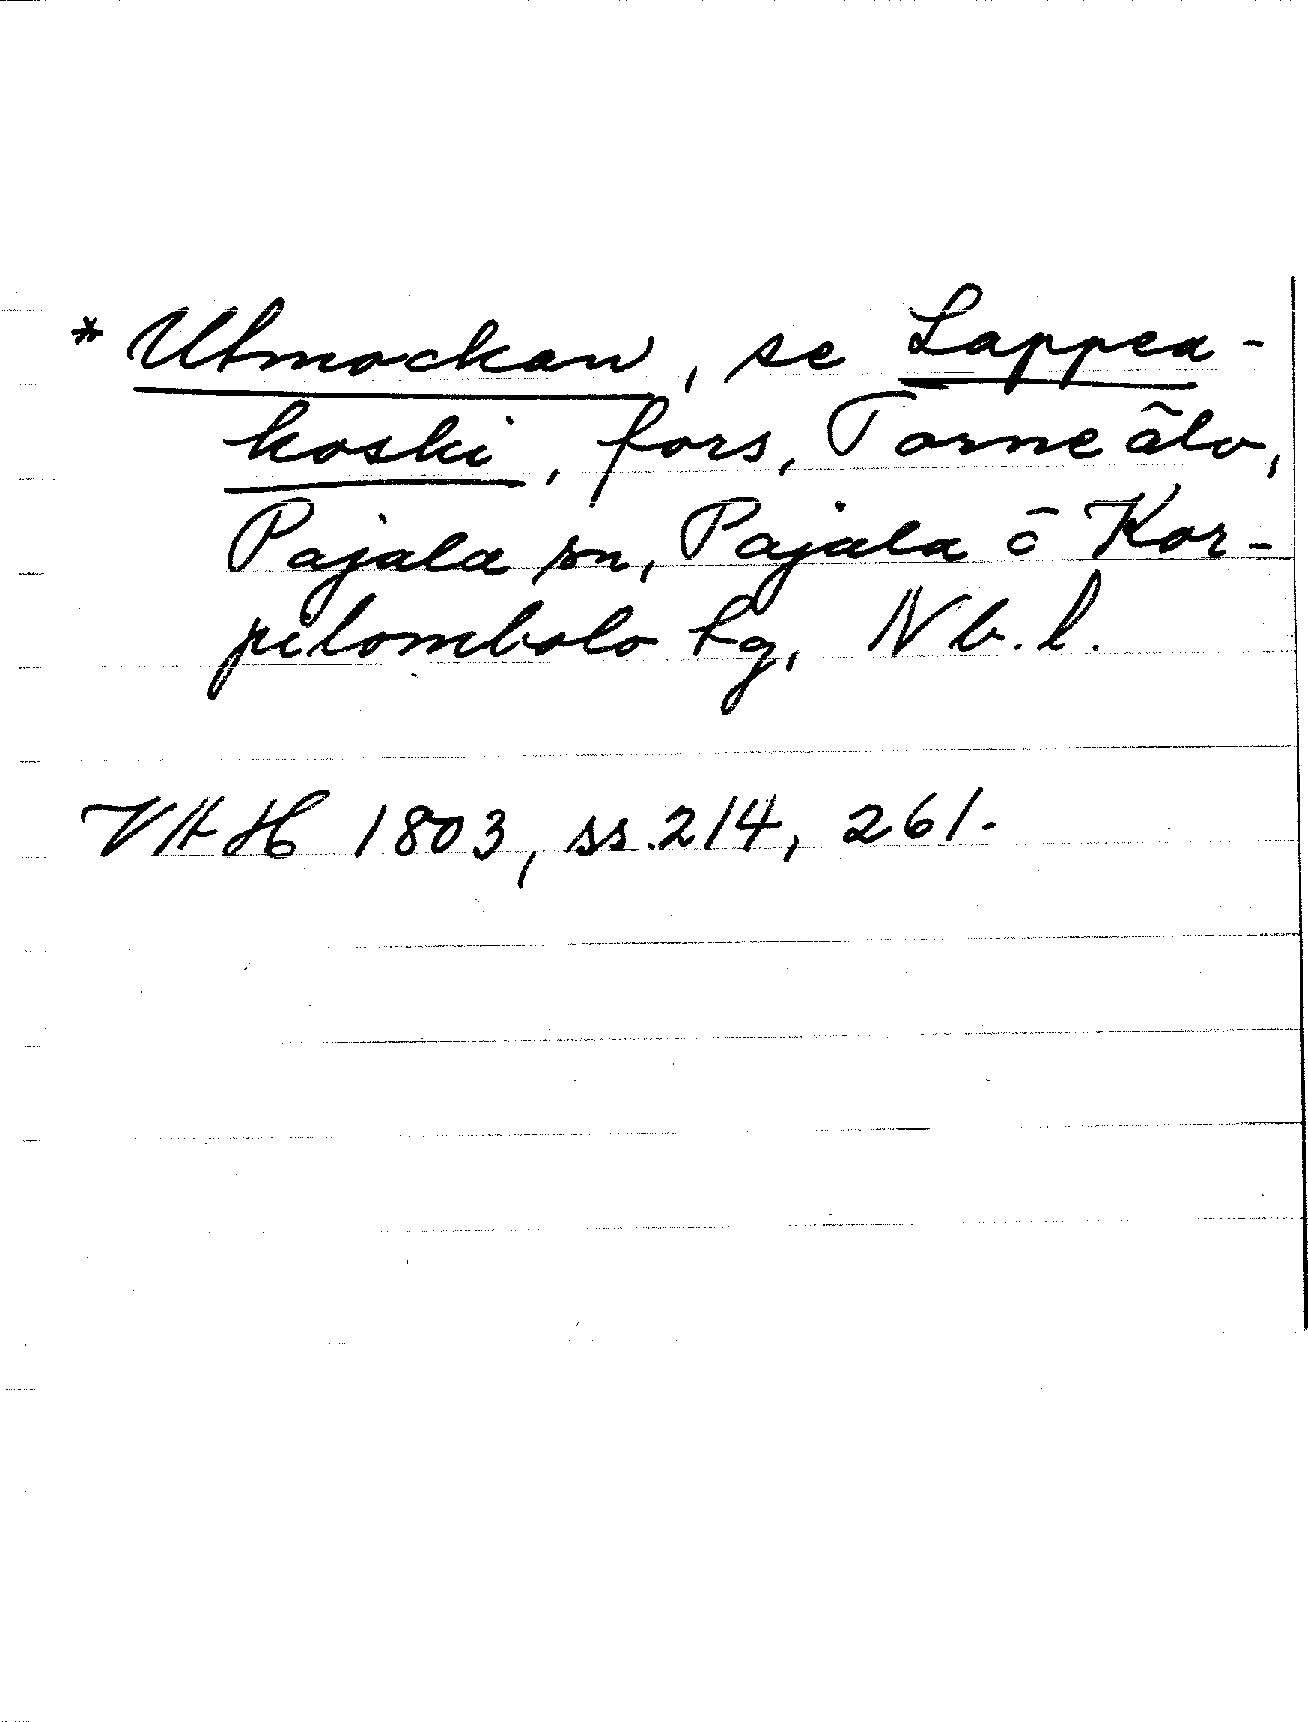 * Utmockan, se Lappea-
koski, fors, Torne älv,
Pajala sn, Pajala o Kor-
pilombolo tg, Nb. l.
VAH 1803, ss. 214, 261.